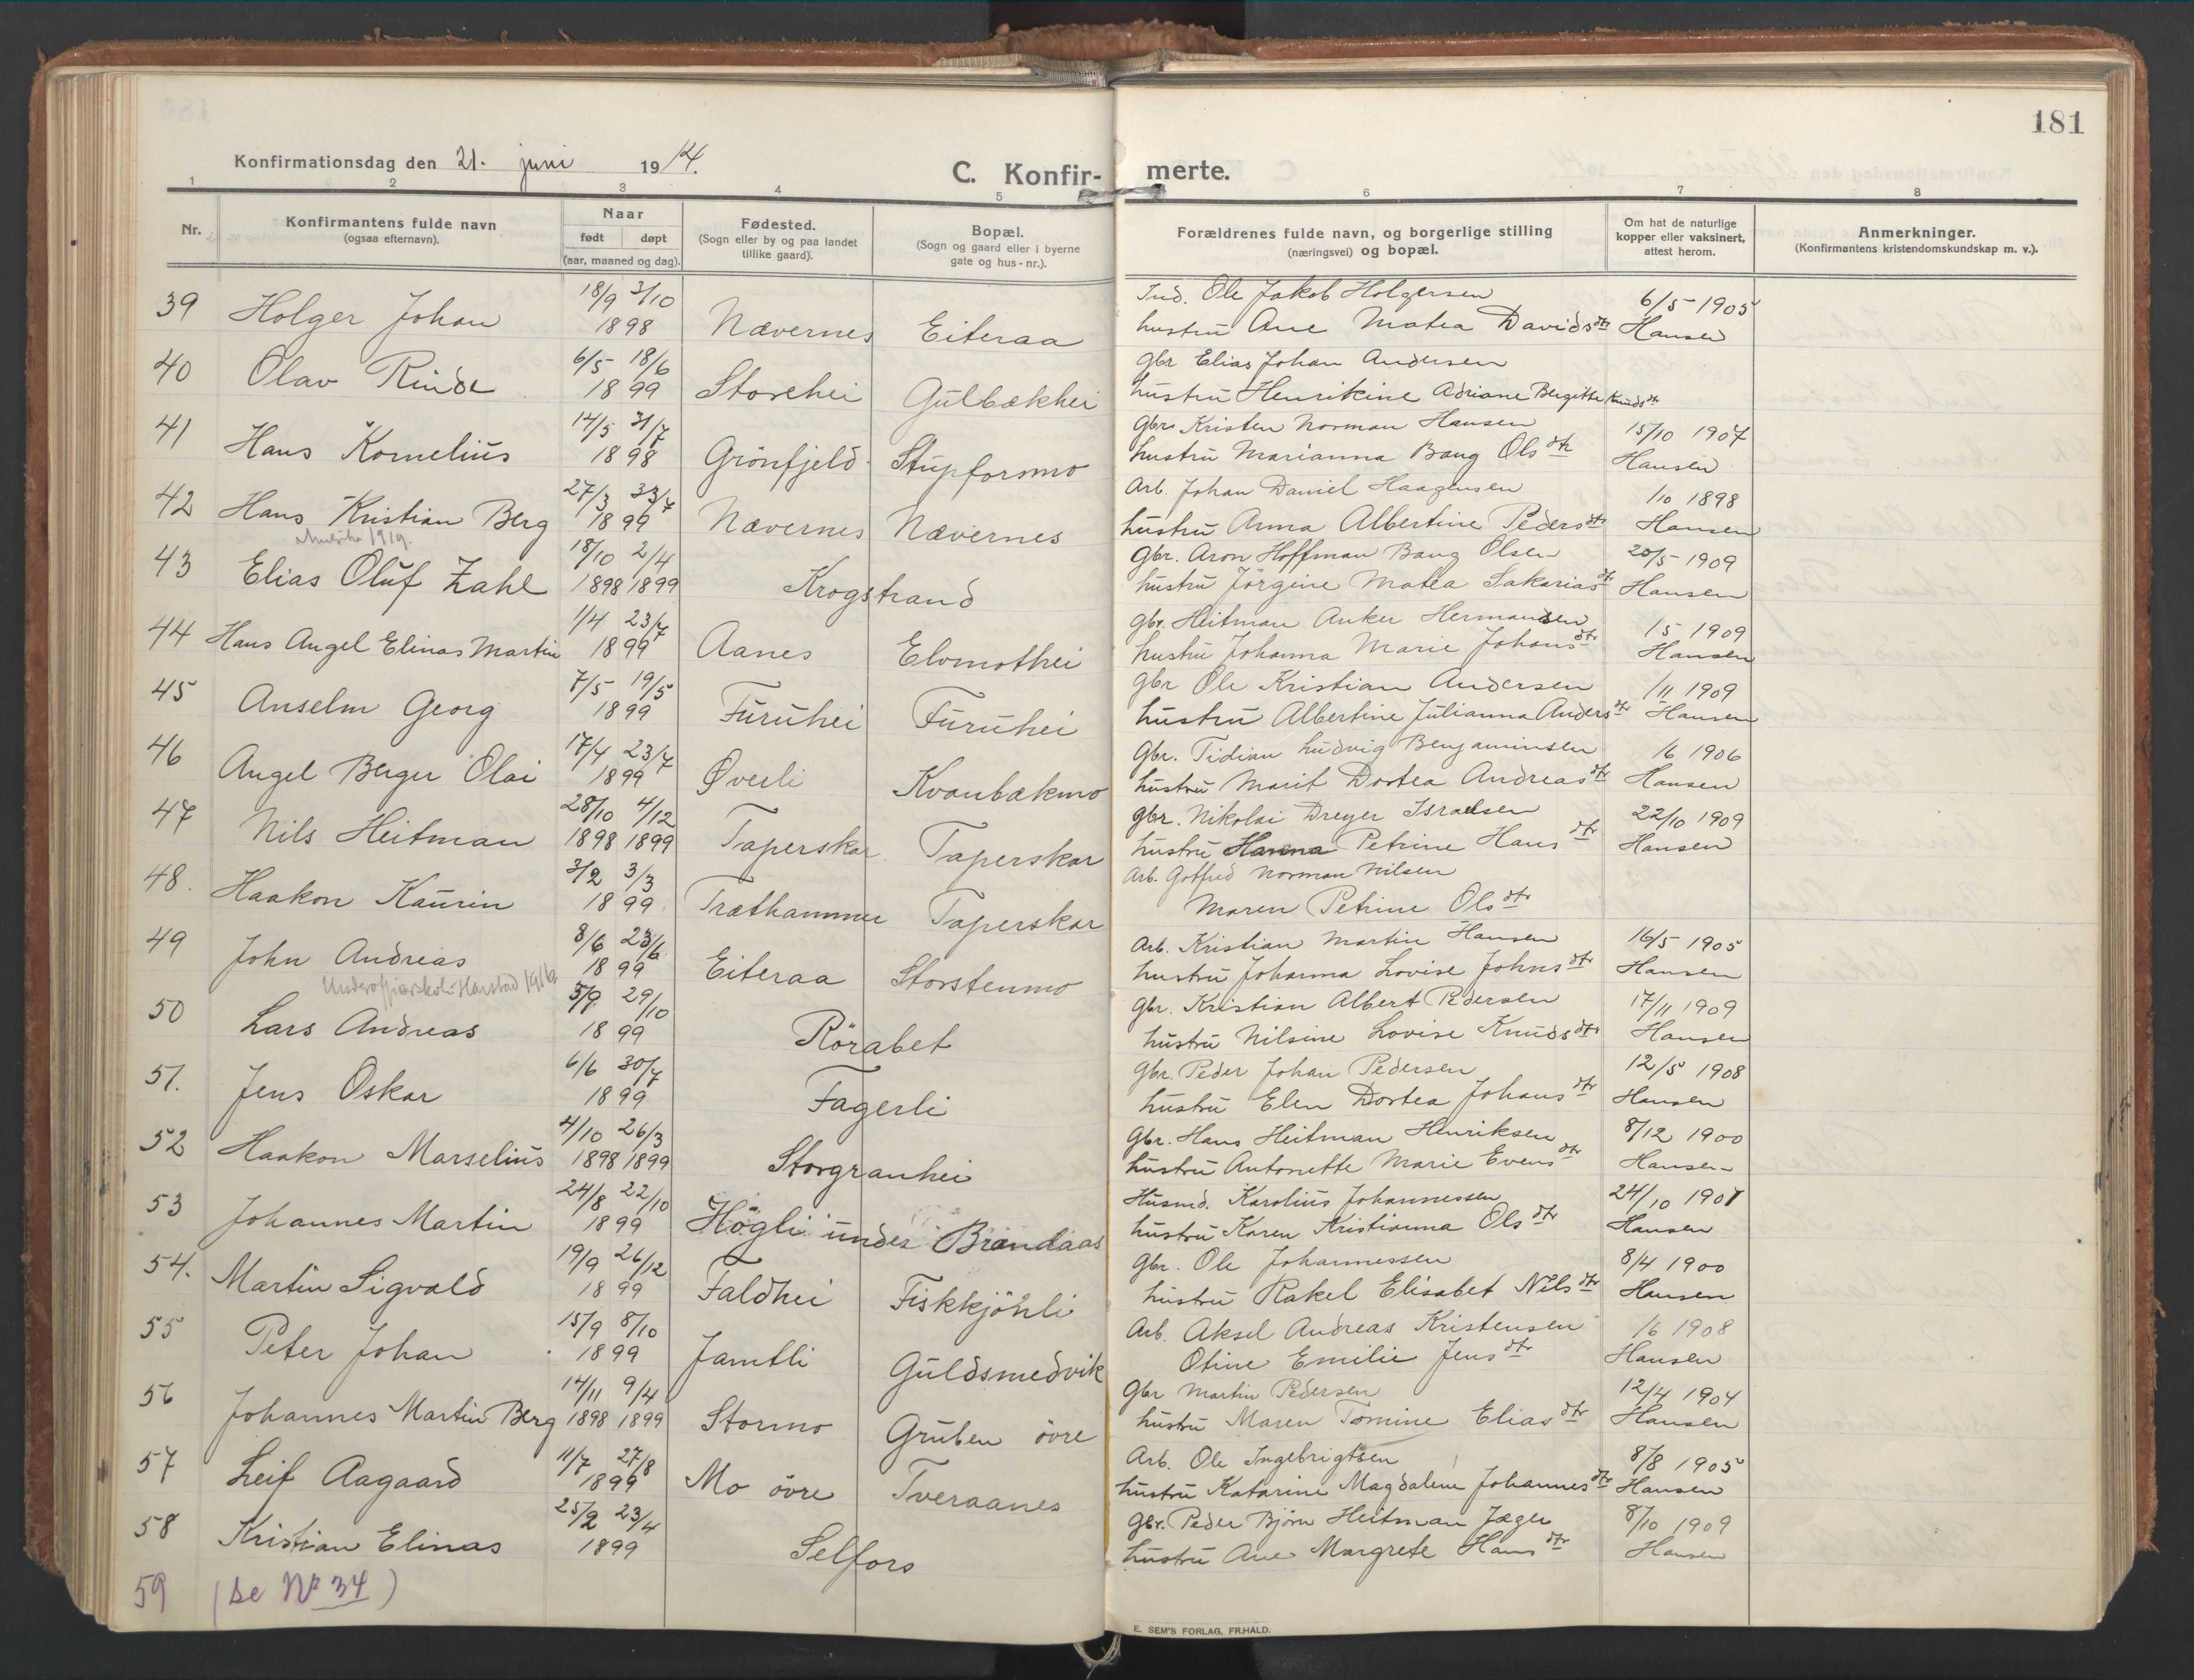 181
Konfirmationsdag den 21. juni 1914.
C. Konfirmerte.
1 2 3 4 5 6 7 8
Nr. Konfirmantens fulde navn (ogsaa efternavn). Naar født døpt (aar, maaned og dag). Fødested. (Sogn eller by og paa landet tillike gaard). Bopæl. (Sogn og gaard eller i byerne gate og hus-nr.). Forældrenes fulde navn, og borgerlige stilling (næringsvei) og bopæl. Om hat de naturlige kopper eller vaksinert, attest herom. Anmerkninger. (Konfirmantens kristendomskundskap m. v.).
39 Holger Johan 18/9 3/10 1898 Nævernes Eiteraa Ind. Ole Jakob Holgersen 6/5 1905
hustru Ane Matea Davidsdtr Hansen
40 Olav Rinde 6/5 18/6 1899 Storehei Gulbækhei gbr Elias Johan Andersen
hustru Henrikine Adriane Bergitte Knudsdtr
41 Hans Kornelius 14/5 31/7 1898 Grönfjeld Stupforsmo gbr. Kristen Norman Hansen 15/10 1907
hustru Marianna Bang Olsdtr Hansen
42 Hans Kristian Berg 27/3 33/7 1899 Nævernes Nævernes Arb. Johan Daniel Haagensen 1/10 1898
1919. hustru Anna Albertine Pedersdtr Hansen
43 Elias Oluf Zahl 18/10 2/4 1898 1899 Krogstrand gbr. Aron Hoffman Bang Olsen 20/5 1909
hustru Jörgine Matea Sakariasdtr Hansen
44 Hans Angel Elinas Martin 1/4 23/7 1899 Aanes Elvmothei gbr. Heitman Anker Hermansen 1/5 1909
hustru Johanna Marie Johansdtr Hansen
45 Anselm Georg 7/5 19/5 1899 Furuhei Furuhei gbr Ole Kristian Andersen 1/11 1909
hustru Albertine Julianna Andersdtr Hansen
46 Angel Berger Olai 17/4 23/7 1899 Øverli Kvanbækmo Gbr. Tidian Ludvig Benjaminsen 1/6 1906
hustru Marit Dortea Andreasdtr Hansen
47 Nils Heitman 28/10 4/12 1898 1899 Taperskar Taperskar gbr. Nikolai Dreyer Israelsen 22/10 1909
hustru Hanna Petrine Hansdtr Hansen
48. Haakon Kaurin 3/2 3/3 1899 Træthammer Taperskar Arb. Gotfred Norman Nilsen
Maren Petrine Olsdtr
49 John Andreas 8/6 23/6 1899 Eiteraa Storstenmo Arb. Kristian Martin Hansen 16/5 1905
Underoffiserskole Harstad 1916 hustru Johanna Lovise Johnsdtr Hansen
50 Lars Andreas 5/9 29/10 1899 Rörabet Gbr. Kristian Albert Pedersen 17/11 1909
hustru Nilsine Lovise Knudsdtr Hansen
51. Jens Oskar 6/6 30/7 1899 Fagerli gbr. Peder Johan Pedersen 12/5 1908
hustru Elen Dortea Johansdtr Hansen
52 Haakon Marselius 4/10 26/3 1898 1899 Storgranhei Gbr. Hans Heitman Henriksen 8/12 1900
hustru Antonette Marie Evensdtr Hansen
53 Johannes Martin 24/8 22/10 1899 Högli under Brandaas Husmd. Karolius Johannessen 24/10 1907
hustru Karen Kristianna Olsdtr Hansen
54. Martin Sigvald 19/9 26/12 1899 Faldhei Fiskkjönli gbr. Ole Johannessen 8/4 1900
hustru Rakel Elisabet Nilsdtr Hansen
55 Peter Johan 15/9 8/10 1899 Jamtli Guldsmedvik Arb. Aksel Andreas Kristensen 1/6 1908
Otine Emilie Jensdtr Hansen
56 Johannes Martin Berg 14/11 9/4 1898 1899 Stormo Gruben övre Gbr Martin Pedersen 12/4 1904
hustru Maren Tomine Eliasdtr Hansen
57 Leif Aagaard 11/7 27/8 1899 Mo övre Tveraanes Arb. Ole Ingebrigtsen 8/8 1905
hustru Katarine Magdalene Johannesdtr Hansen
58 Kristian Elinas 25/2 23/4 1899 Selfors gbr. Peder Bjørn Heitman Jæger 8/10 1909
hustru Ane Margrete Hansdtr Hansen
59 (se No 34)
E. SEM'S FORLAG, FR.HALD.